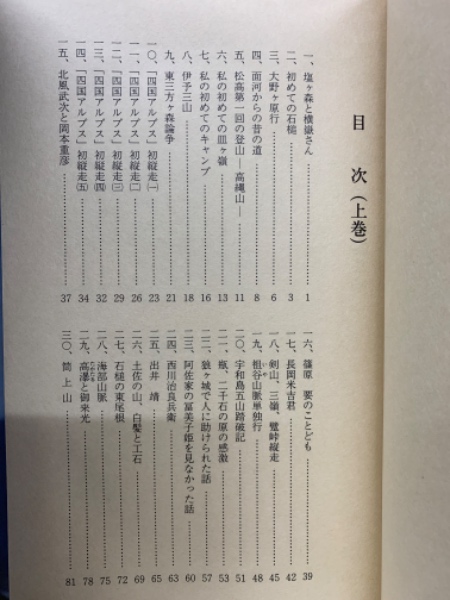 目次(上巻)
一、塩ヶ森と横嶽さん 1
二、初めての石槌 3
三、大野ヶ原行 6
四、面河からの昔の道 8
五、松高第一回の登山―高縄山― 11
六、私の初めての皿ヶ嶺 13
七、私の初めてのキャンプ 16
八、伊予三山 18
九、東三方ヶ森論争 21
一〇、「四国アルプス」初縦走㈠ 23
一一、「四国アルプス」初縦走㈡ 26
一二、「四国アルプス」初縦走㈢ 29
一三、「四国アルプス」初縦走㈣ 32
一四、「四国アルプス」初縦走㈤ 34
一五、北風武次と岡本重彦 37
一六、篠原 要のことども 39
一七、長岡米吉君 42
一八、剣山、三嶺、躄峠縦走 45
一九、祖谷山脈単独行 48
二〇、宇和島五山踏破記 51
二一、瓶、二千石の原の感激 53
二二、狼ヶ城で人に助けられた話 57
二三、阿佐家の冨美子姫を見なかった話 60
二四、西川治良兵衛 63
二五、出井 靖 65
二六、土佐の山、白髪と工石 69
二七、石槌の東尾根 72
二八、海部山脈 75
二九、高瀑と御来光 78
三〇、筒上山 81